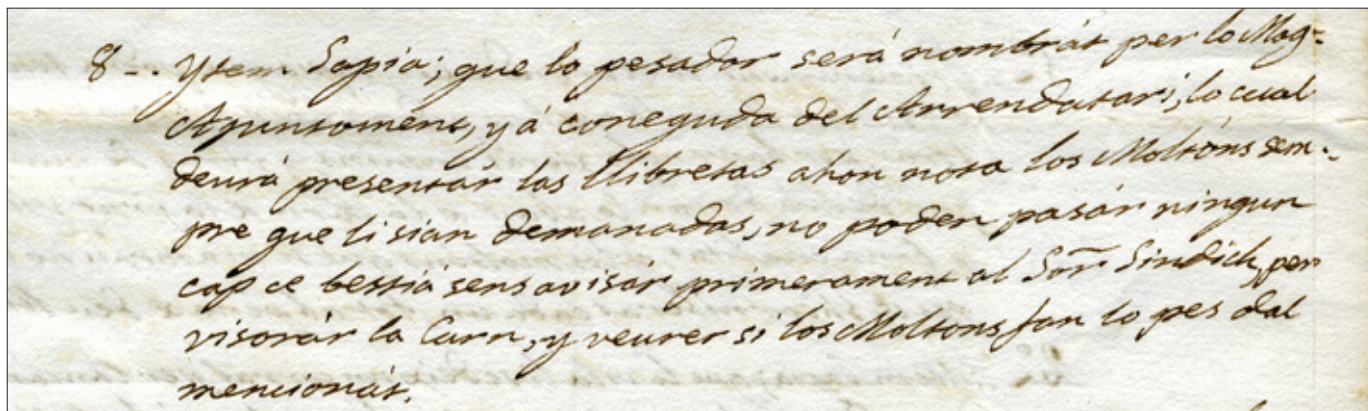 8 -- Ytem. Sapia; que lo pesador será nombrát per lo Mag=
Ajuntament, y á coneguda del Arrendatari, lo cual
deurá presentár las llibretas ahon nota los Moltóns sem=
pre que li sian demanadas, no poden pasár ningun
cap de bestiá sens avisár primerament al Sor. Sindich, per
visorár la Carn, y veurer si los Moltons fan lo pes dal
mencionát.